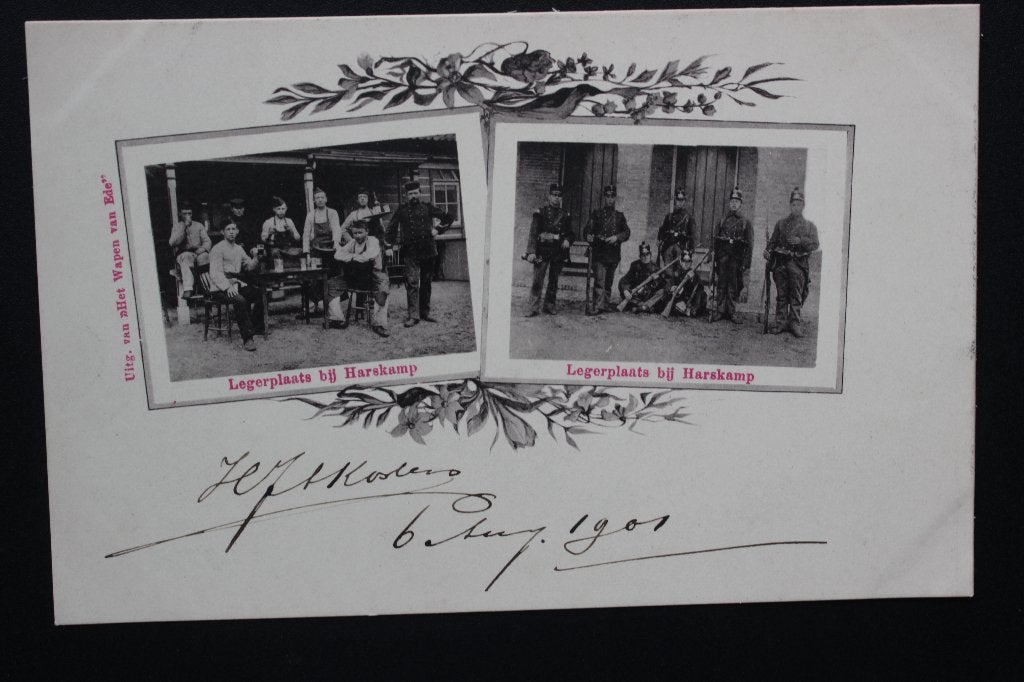 Uitg. van „Het Wapen van Ede”
Legerplaats bij Harskamp
Legerplaats bij Harskamp
Kosters
6 Aug. 1901